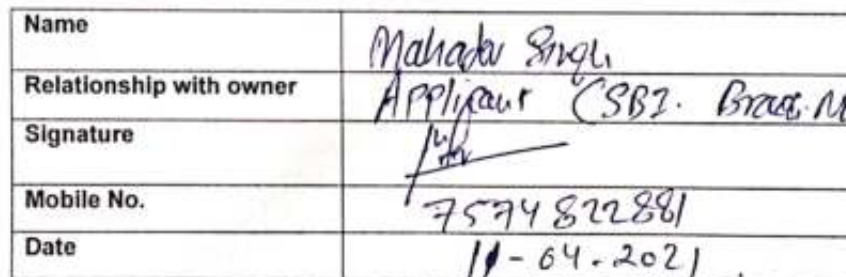 Name Mahadev Singh
Relationship with owner Applicant (SBI. Branch. M
Signature
Mobile No. 7574822881
Date 11-04-2021